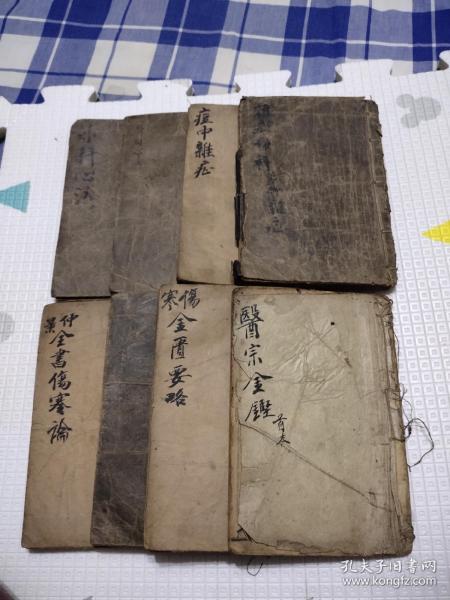 小科心法
痘中雜症
仲景
全書傷寒論
傷寒
金匱要略
醫宗金鑑
首卷
孔夫子旧书网
www.kongfz.com